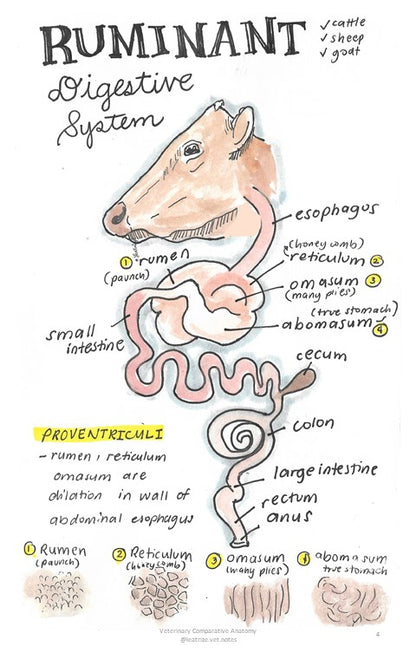 RUMINANT
✓ cattle
✓ sheep
✓ goat
Digestive
System
esophagus
(honey comb)
① rumen
(paunch)
reticulum ②
omasum ③
(many plies)
(true stomach)
abomasum ④
small
intestine
cecum
colon
PROVENTRICULI
- rumen, reticulum
omasum are
dilation in wall of
abdominal esophagus
large intestine
rectum
anus
① Rumen
(paunch)
② Reticulum
(honey comb)
③ omasum
(many plies)
④ abomasum
true stomach
Veterinary Comparative Anatomy
@leatriae.vet.notes
4